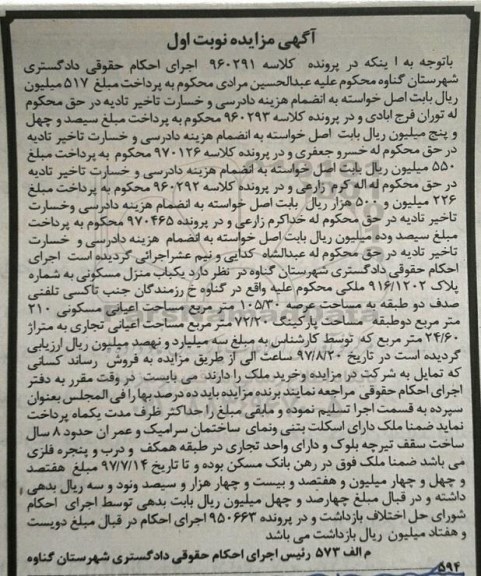 آگهی مزایده نوبت اول
باتوجه به اینکه در پرونده کلاسه ۹۶۰۲۹۱ اجرای احکام حقوقی دادگستری
شهرستان گناوه محکوم علیه عبدالحسین مرادی محکوم به پرداخت مبلغ ۵۱۷ میلیون
ریال بابت اصل خواسته به انضمام هزینه دادرسی و خسارت تاخیر تادیه در حق محکوم
له توران فرج ابادی و در پرونده کلاسه ۹۶۰۲۹۳ محکوم به پرداخت مبلغ سیصد و چهل
و پنج میلیون ریال بابت اصل خواسته به انضمام هزینه دادرسی و خسارت تاخیر تادیه
در حق محکوم له خسرو جعفری و در پرونده کلاسه ۹۷۰۱۲۶ محکوم به پرداخت مبلغ
۵۵۰ میلیون ریال بابت اصل خواسته به انضمام هزینه دادرسی و خسارت تاخیر تادیه
در حق محکوم له اله کرم زارعی و در پرونده کلاسه ۹۶۰۲۹۲ محکوم به پرداخت مبلغ
۲۲۶ میلیون و ۵۰۰ هزار ریال بابت اصل خواسته به انضمام هزینه دادرسی وخسارت
تاخیر تادیه در حق محکوم له خداکرم زارعی و در پرونده ۹۷۰۴۶۵ محکوم به پرداخت
مبلغ سیصد وده میلیون ریال بابت اصل خواسته به انضمام هزینه دادرسی و خسارت
تاخیر تادیه در حق محکوم له عبدالشاه کدایی و نیم عشراجرائی گردیده است اجرای
احکام حقوقی دادگستری شهرستان گناوه در نظر دارد یکباب منزل مسکونی به شماره
پلاک ۹۱۶/۱۲۰۲ ملکی محکوم علیه واقع در گناوه خ رزمندگان جنب تاکسی تلفنی
صدف دو طبقه به مساحت عرصه ۱۰۵/۳۰ متر مربع مساحت اعیانی مسکونی ۲۱۰
متر مربع دوطبقه مساحت پارکینگ ۷۲/۲۰ متر مربع مساحت اعیانی تجاری به متراژ
۲۴/۶۰ متر مربع که توسط کارشناس به مبلغ سه میلیارد و نهصد میلیون ریال ارزیابی
گردیده است در تاریخ ۹۷/۸/۲۰ ساعت الی از طریق مزایده به فروش رساند کسانی
که تمایل به شرکت در مزایده وخرید ملک را دارند می بایست در وقت مقرر به دفتر
اجرای احکام حقوقی مراجعه نمایند برنده مزایده باید ده درصد بها را فی المجلس بعنوان
سپرده به قسمت اجرا تسلیم نموده و مابقی مبلغ را حداکثر ظرف مدت یکماه پرداخت
نماید ضمنا ملک دارای اسکلت بتنی ونمای ساختمان سرامیک و عمر ان حدود ۸ سال
ساخت سقف تیرچه بلوک و دارای واحد تجاری در طبقه همکف و درب و پنجره فلزی
می باشد ضمنا ملک فوق در رهن بانک مسکن بوده و تا تاریخ ۹۷/۷/۱۴ مبلغ هفتصد
و چهل و چهار میلیون و هفتصد و بیست و چهار هزار و سیصد ونود و سه ریال بدهی
داشته و در قبال مبلغ چهارصد و چهل میلیون ریال بابت بدهی توسط اجرای احکام
شورای حل اختلاف بازداشت و در پرونده ۹۵۰۶۶۳ اجرای احکام در قبال مبلغ دویست
و هفتاد میلیون ریال بازداشت می باشد
م الف ۵۷۳ رئیس اجرای احکام حقوقی دادگستری شهرستان گناوه
۵۹۴